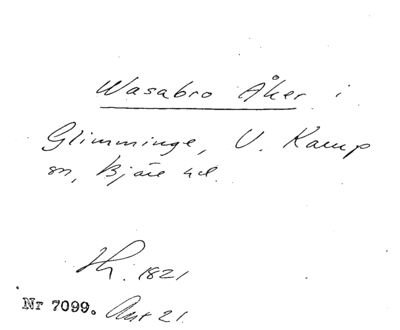 Wasabro Åker i
Glimminge, V. Karup
sn, Bjäre hd.
Th. 1821
Nr 7099. Akt 21.